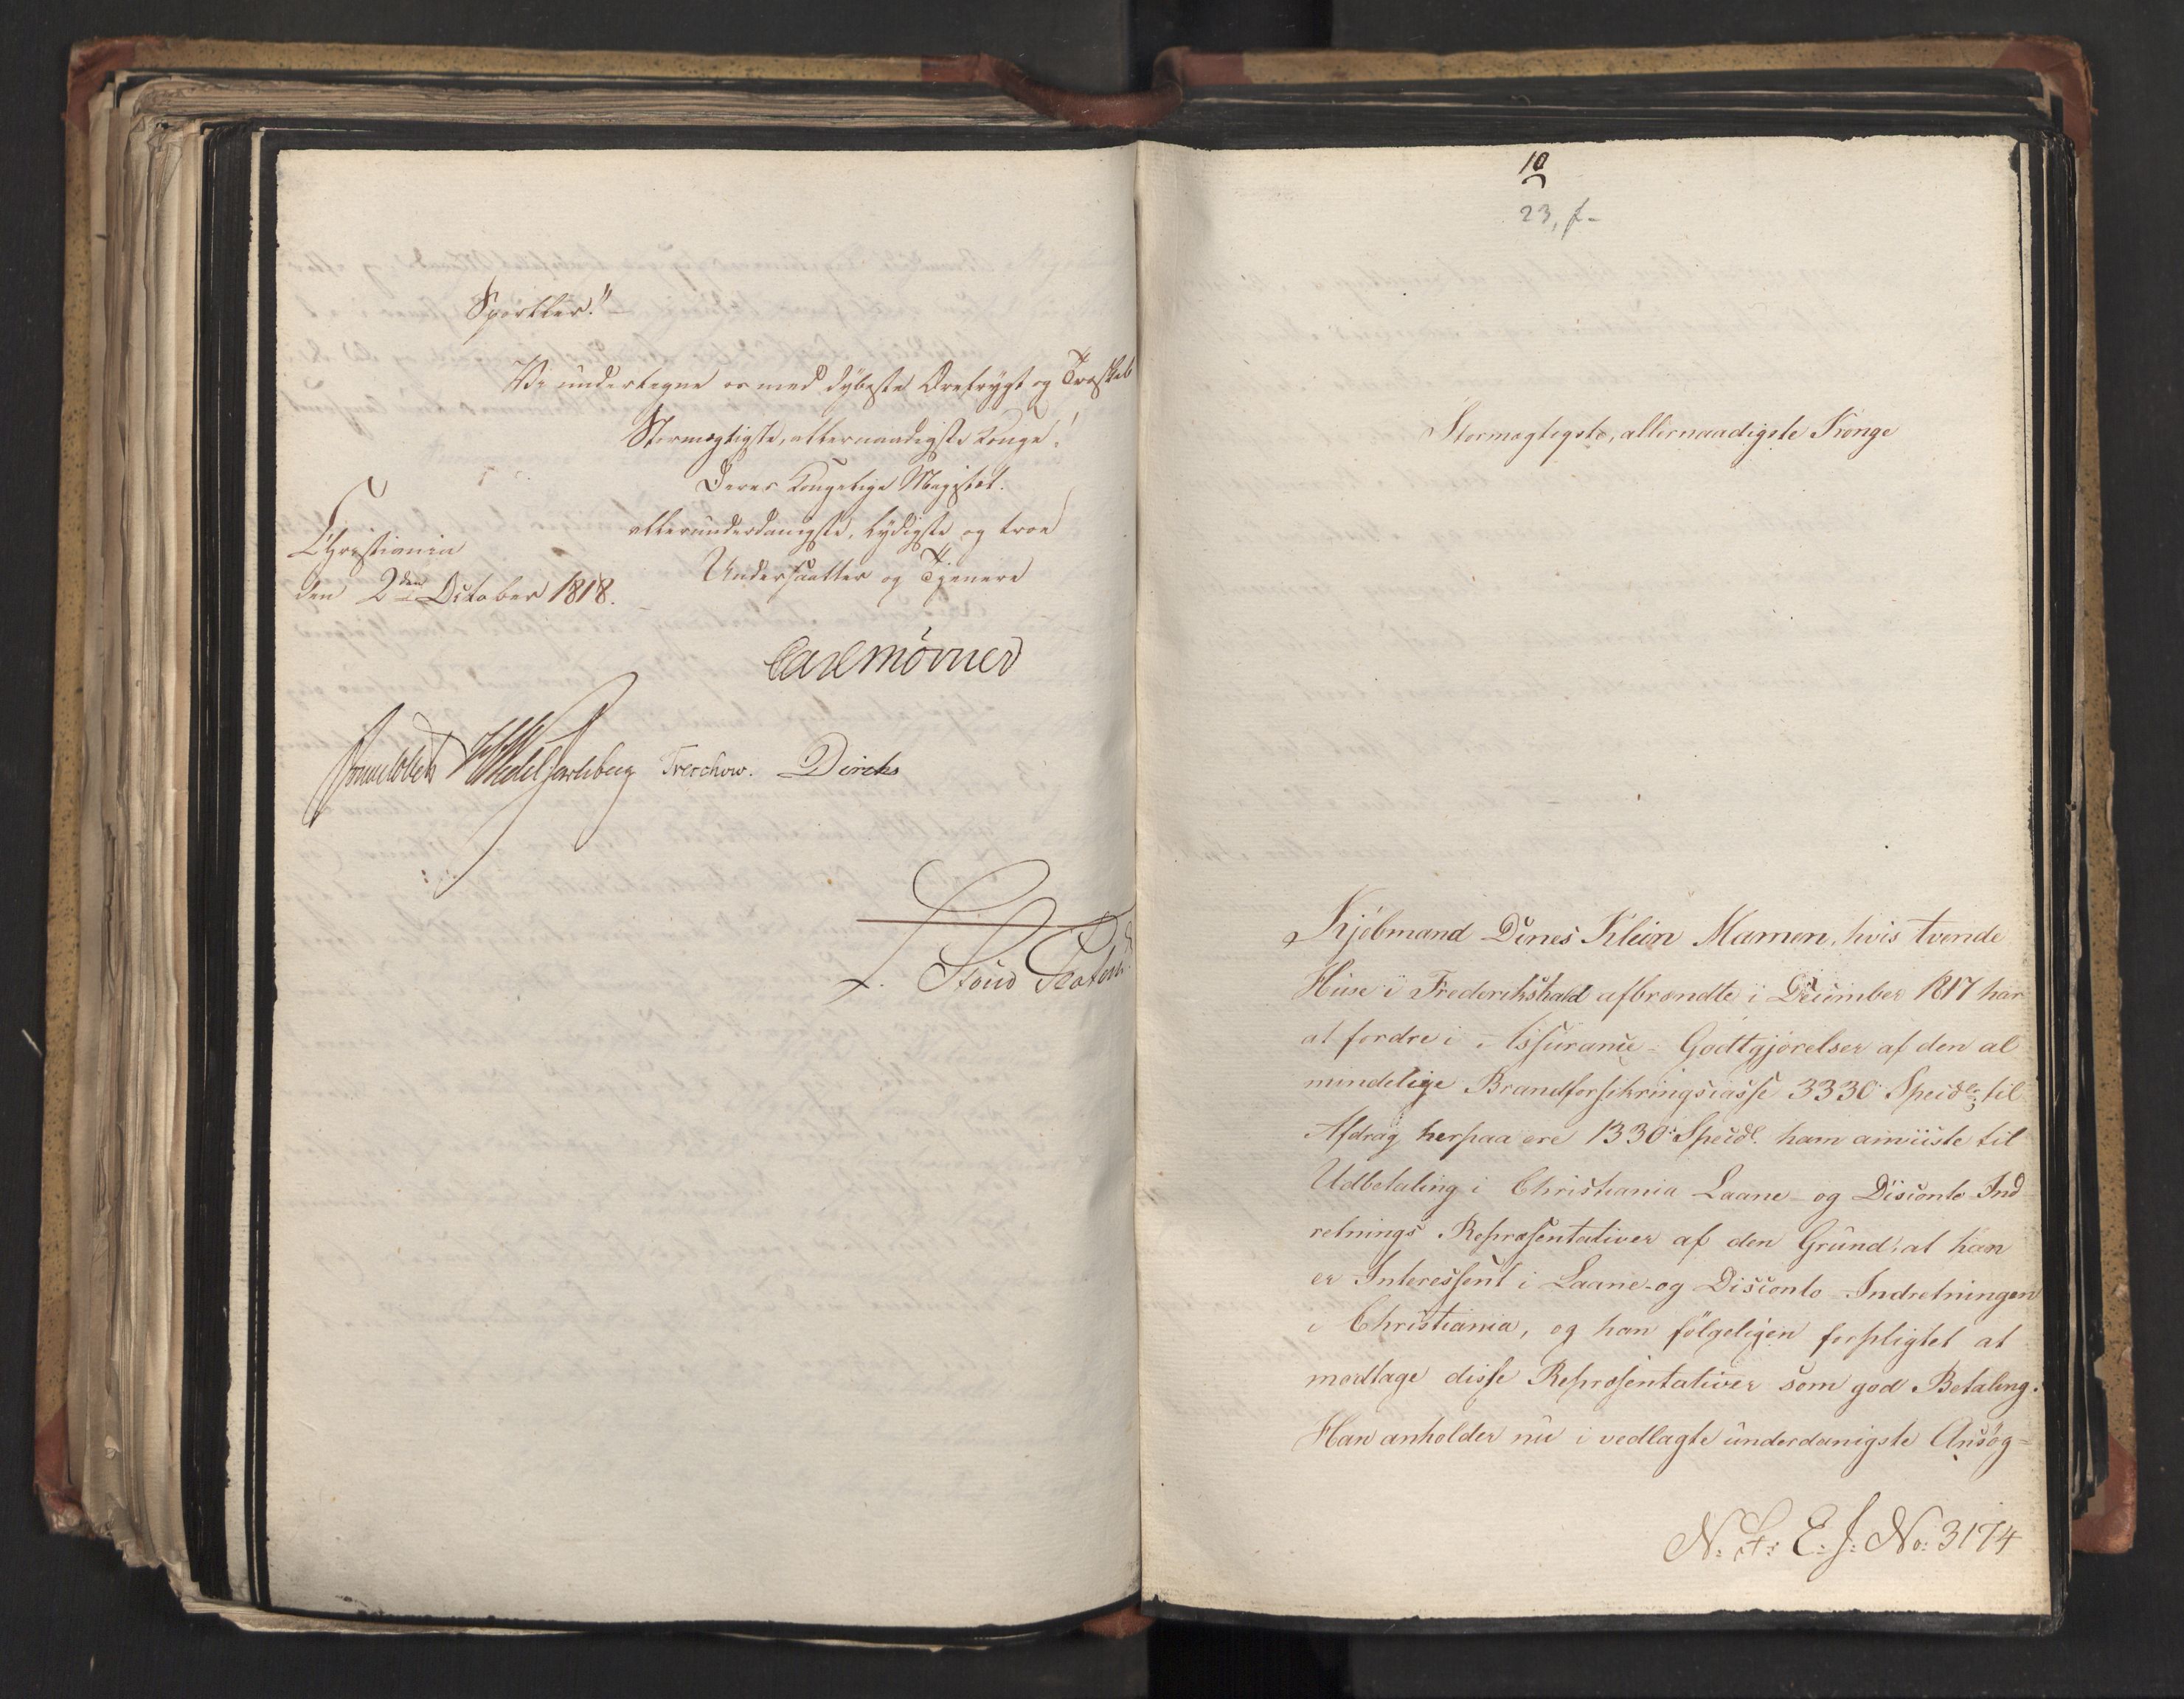 Sportler."
Vi undertegne os med dybeste Ærefrygt og Troskab
Stormægtigste, allernaadigste Konge!
Deres Kongelige Majestæt.
allerunderdanigste, lydigste og troe
Christiania
Undersaatter og Tjenere
den 2den October 1818.
Carl Mörner
Sommerhielm HWedel Jarlsberg Treschow. Diriks
L. Stoud Platou
10
23, f-
Stormægtigste, allernaadigste Konge
Kjøbmand Dines Klein Mamen, hvis tvende
Huse i Frederikshald afbrændte i December 1817 har
at fordre i Assurance-Godtgjørelser af den al
mindelige Brandforsikringscasse 3330 Specdlr, til
Afdrag herpaa ere 1330 Specdl. ham anviiste til
Udbetaling i Christiania Laane- og Disconto Ind
retnings Repræsentativer af den Grund, at han
er Interessent i Laane- og Disconto-Indretningen
i Christiania, og han følgeligen forpligtet at
modtage disse Repræsentativer som god Betaling.
Han anholder nu i vedlagte underdanigste Ansøg=
N: S: E: J: No: 3174